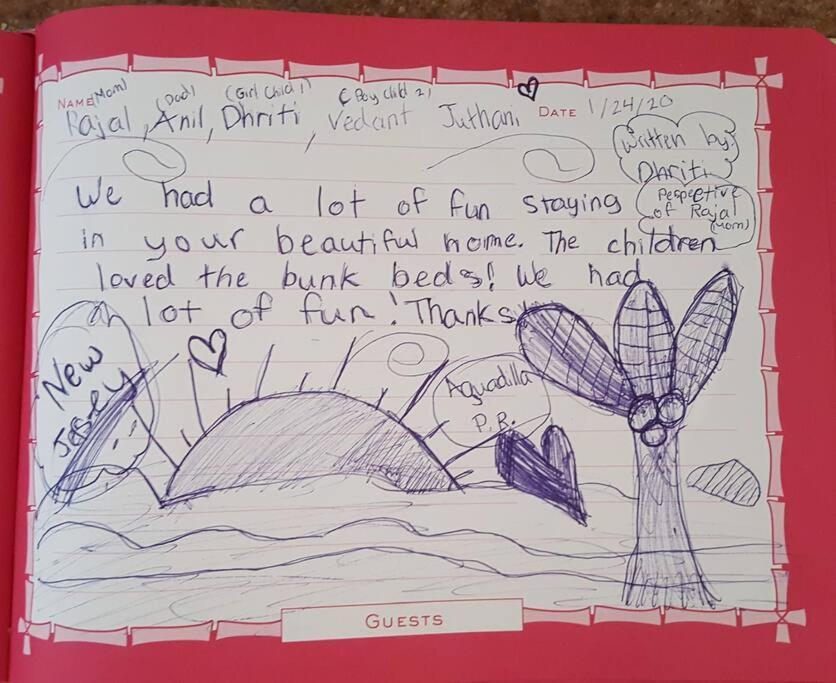 (Mom) (Dad) (Girl Child 1) (Boy Child 2)
NAME Rajal, Anil, Dhriti, Vedant Juthani DATE 1/24/20
Written by:
Dhriti
Pespective
of Rajal
(Mom)
We had a lot of fun staying
in your beautiful home. The children
loved the bunk beds! We had
a lot of fun! Thanks!
New
Jersey
Aguadilla
P.R.
GUESTS